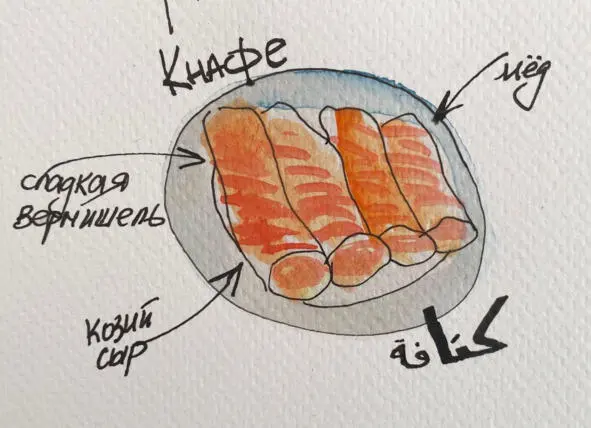 Кнафе
мёд
сладкая
вермишель
козий
сыр
كنافة